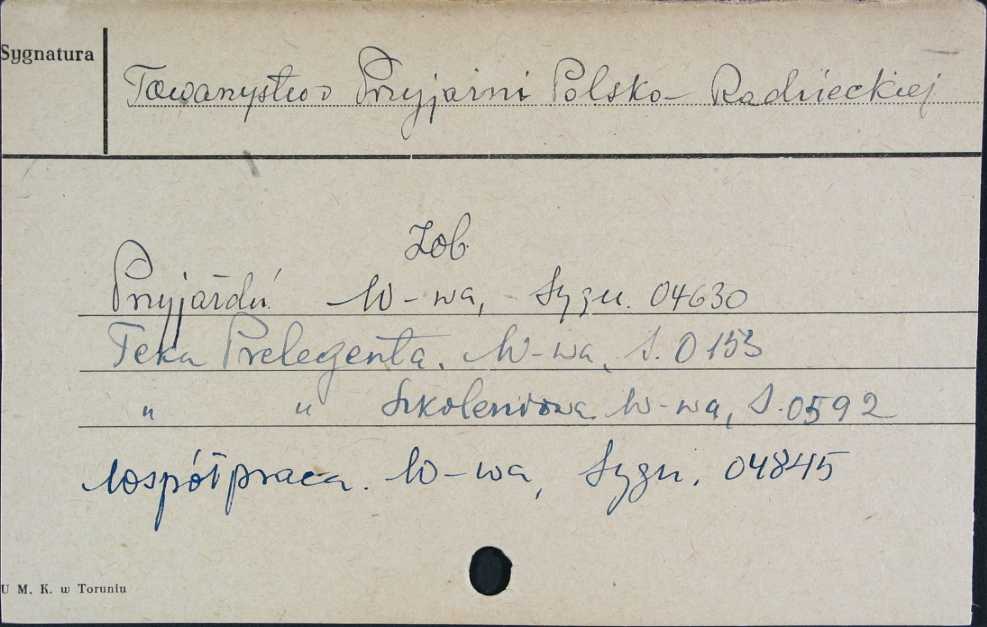 Sygnatura
Towarzystwo Przyjaźni Polsko-Radzieckiej
Zob
Przyjaźń. W-wa, - Sygn. 04630
Teka Prelegenta. W-wa, S. 0153
" " Szkoleniowa W-wa, S. 0592
Współpraca. W-wa, Sygn. 04845
U M. K. w Toruniu